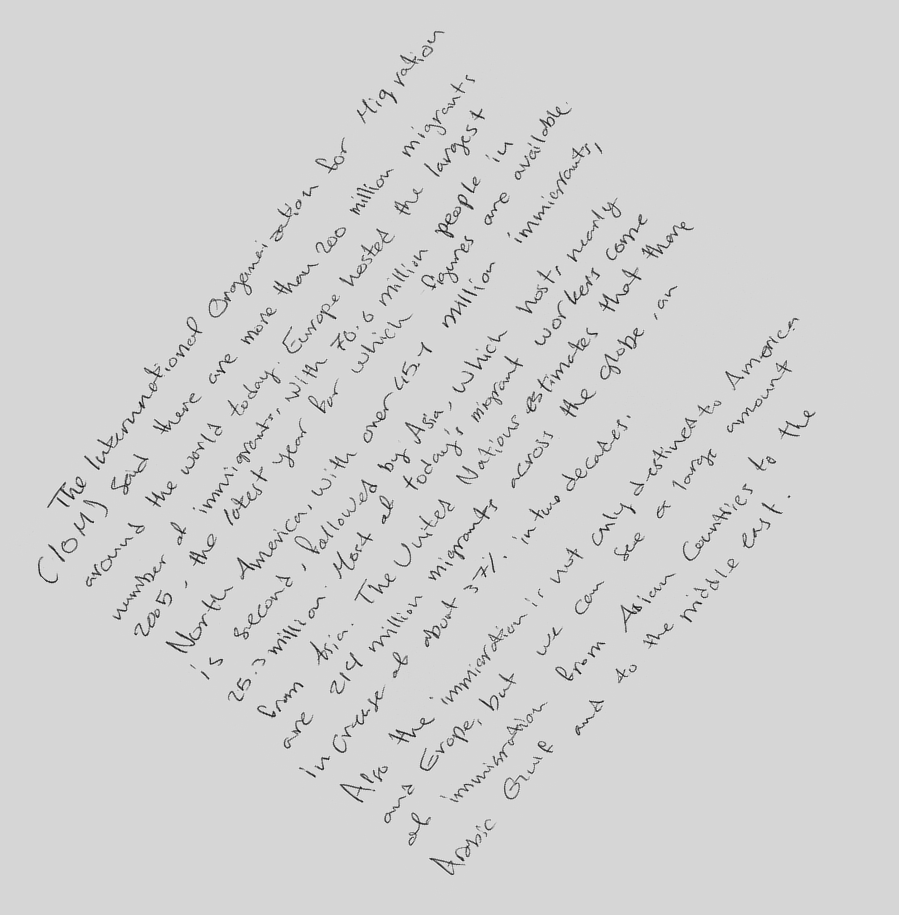 The International Organaization for Migration
(IOM) said there are more than 200 million migrants
around the world today. Europe hosted the largest
number of immigrants, with 70.6 million people in
2005, the latest year for which figures are available.
North America, with over 45.1 million immigrants,
is second, followed by Asia, which host, nearly
25.3 million. Most of today's migrant workers come
from Asia. The United Nations estimates that there
are 214 million migrants across the globe, an
increase of about 37% in two decades.
Also the immigration is not only destined to America
and Erope, but we can see a large amount
of immigration from Asian Countries to the
Arabic Gulf and to the middle east.